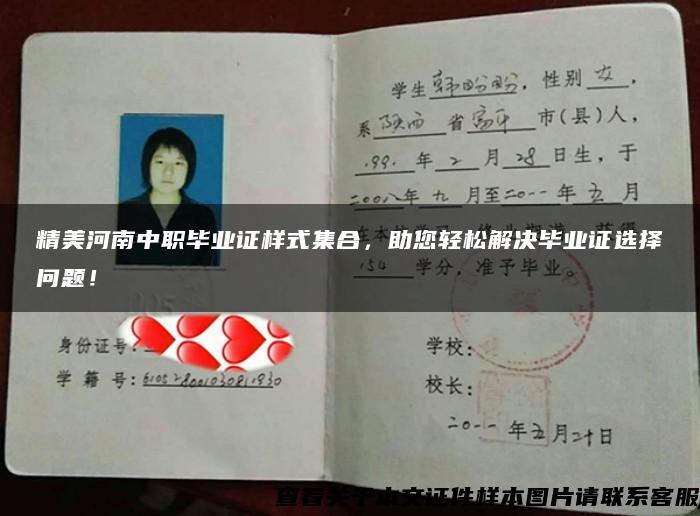 学生韩盼盼，性别女，
系陕西省富平市(县)人，
1991年2月28日生，于
二00八年九月至二0一一年五月
精美河南中职毕业证样式集合，助您轻松解决毕业证选择
问题！
154学分，准予毕业。
身份证号：
学籍号：610528001030811930
学校：
校长：
二0一一年五月二十日
查看关于本文证件样本图片请联系客服